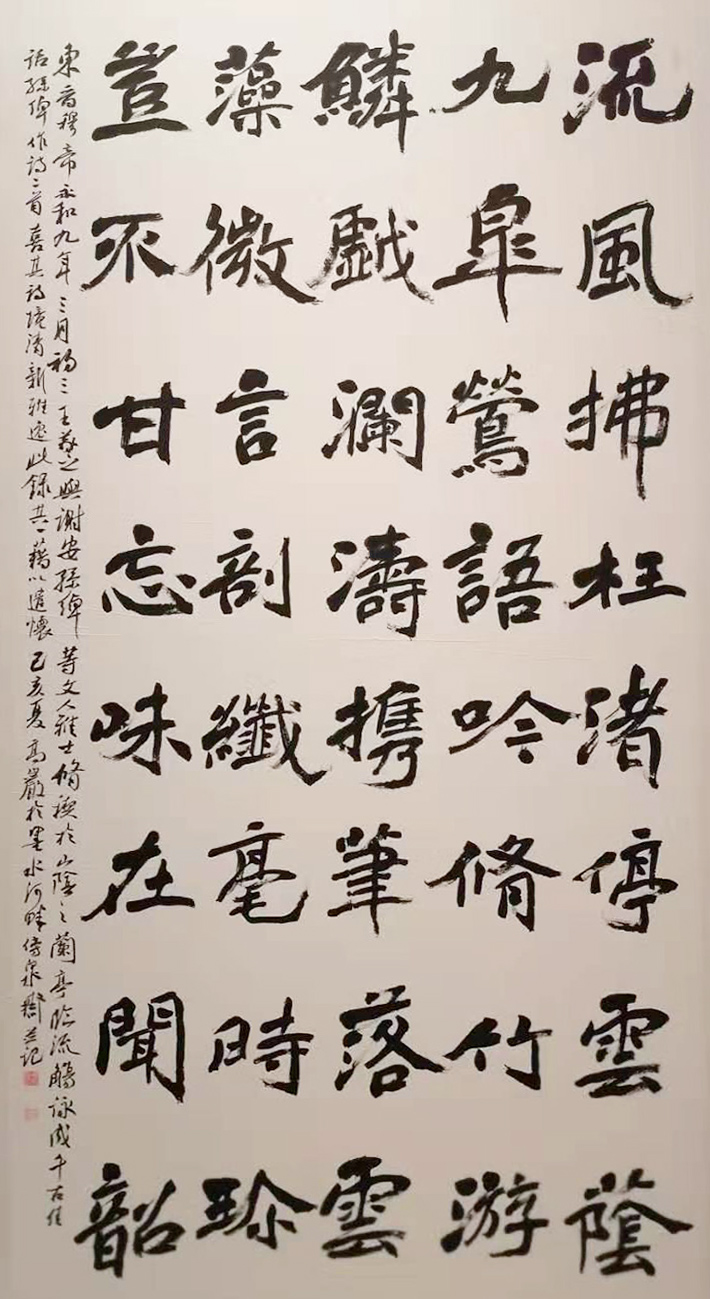 流風拂枉渚停雲蔭
九皐鶯語吟脩竹游
鱗戱瀾濤携筆落雲
藻微言剖纖毫時珍
豈不甘忘味在聞韶
東晉穆帝永和九年三月初三王羲之與謝安孫綽等文人雅士脩禊於山陰之蘭亭臨流觴詠成千古佳
話孫綽作詩二首喜其詩境清新雅逸此録其一藉以遣懷己亥夏高巖於墨水河畔傍泉齋並記